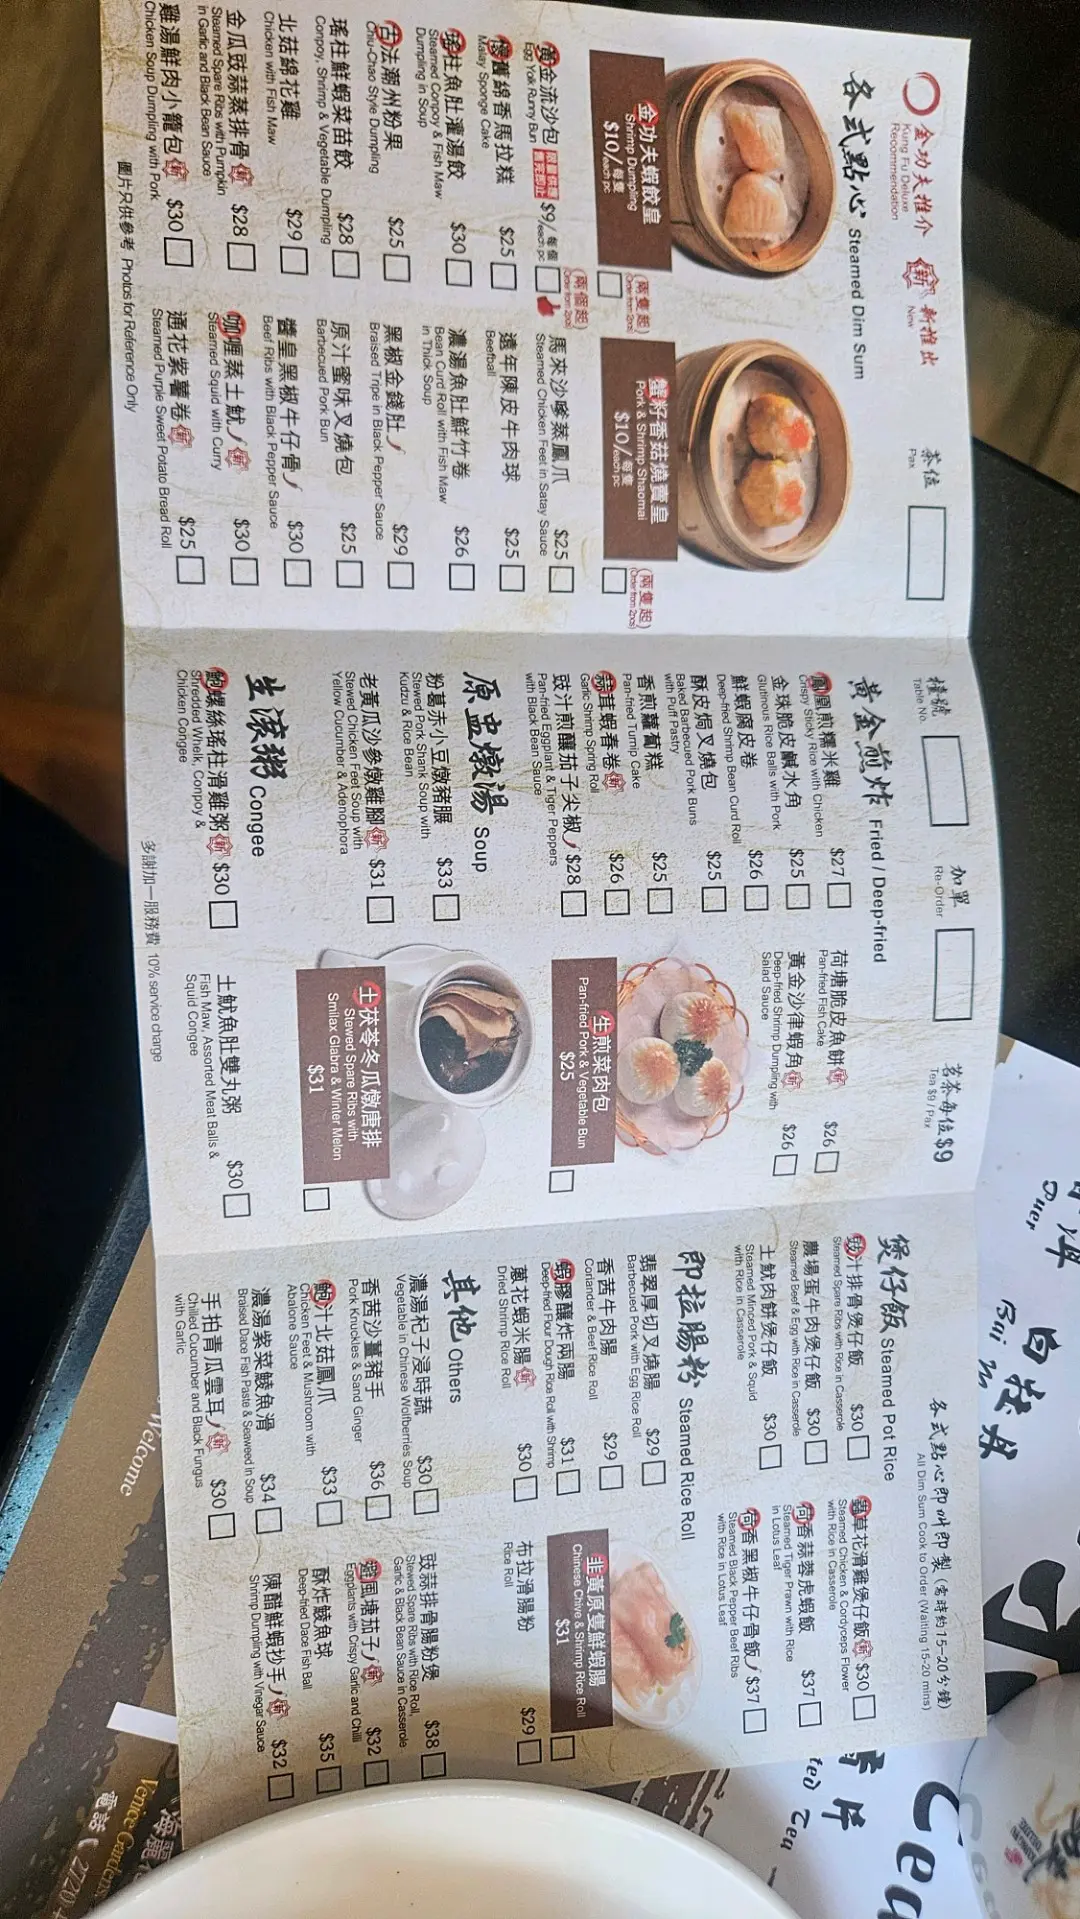 金功夫推介
Kung Fu Deluxe
Recommendation
新 新推出
New
茶位
Pax
各式點心 Steamed Dim Sum
金功夫蝦餃皇
Shrimp Dumpling
$10/每隻
each pc
(兩隻起)
(Order from 2pcs)
蟹籽香菇燒賣皇
Pork & Shrimp Shaomai
$10/每隻
each pc
(兩隻起)
(Order from 2pcs)
黃金流沙包 $9/每個
Egg Yolk Runny Bun
each pc
(兩個起)
(Order from 2pcs)
懷舊綿香馬拉糕 $25
Malay Sponge Cake
瑤柱魚肚灌湯餃 $30
Steamed Conpoy & Fish Maw
Dumpling in Soup
古法潮州粉果 $25
Chiu-Chao Style Dumpling
瑤柱鮮蝦菜苗餃 $28
Conpoy, Shrimp & Vegetable Dumpling
北菇綿花雞 $29
Chicken with Fish Maw
金瓜豉蒜蒸排骨 新 $28
Steamed Spare Ribs with Pumpkin
in Garlic and Black Bean Sauce
雞湯鮮肉小籠包 新 $30
Chicken Soup Dumpling with Pork
馬來沙嗲蒸鳳爪 $25
Steamed Chicken Feet in Satay Sauce
遠年陳皮牛肉球 $25
Beefball
濃湯魚肚鮮竹卷 $26
Bean Curd Roll with Fish Maw
in Thick Soup
黑椒金錢肚 $29
Braised Tripe in Black Pepper Sauce
原汁蜜味叉燒包 $25
Barbecued Pork Bun
醬皇黑椒牛仔骨 $30
Beef Ribs with Black Pepper Sauce
咖喱蒸土魷 新 $30
Steamed Squid with Curry
通花紫薯卷 新 $25
Steamed Purple Sweet Potato Bread Roll
圖片只供參考 Photos for Reference Only
檯號
Table No.
加單
Re-Order
茗茶每位$9
Tea $9 / Pax
黃金煎炸 Fried / Deep-fried
鳳凰煎糯米雞 $27
Crispy Sticky Rice with Chicken
金珠脆皮鹹水角 $25
Glutinous Rice Balls with Pork
鮮蝦腐皮卷 $26
Deep-fried Shrimp Bean Curd Roll
酥皮焗叉燒包 $25
Baked Barbecued Pork Buns
with Puff Pastry
香煎蘿蔔糕 $25
Pan-fried Turnip Cake
蒜茸蝦春卷 新 $26
Garlic Shrimp Spring Roll
豉汁煎釀茄子尖椒 $28
Pan-fried Eggplant & Tiger Peppers
with Black Bean Sauce
荷塘脆皮魚餅 新 $26
Pan-fried Fish Cake
黃金沙律蝦角 新 $26
Deep-fried Shrimp Dumpling with
Salad Sauce
生煎菜肉包
Pan-fried Pork & Vegetable Bun
$25
原盅燉湯 Soup
粉葛赤小豆燉豬𦟌 $33
Stewed Pork Shank Soup with
Kudzu & Rice Bean
老黃瓜沙參燉雞腳 新 $31
Stewed Chicken Feet Soup with
Yellow Cucumber & Adenophora
土茯苓冬瓜燉唐排
Stewed Spare Ribs with
Smilax Glabra & Winter Melon
$31
生滾粥 Congee
鮑螺絲瑤柱滑雞粥 新 $30
Shredded Whelk, Conpoy &
Chicken Congee
土魷魚肚雙丸粥 $30
Fish Maw, Assorted Meat Balls &
Squid Congee
多謝加一服務費 10% service charge
各式點心即叫即製(需時約15-20分鐘)
All Dim Sum Cook to Order (Waiting 15-20 mins)
煲仔飯 Steamed Pot Rice
豉汁排骨煲仔飯 $30
Steamed Spare Ribs with Rice in Casserole
農場蛋牛肉煲仔飯 $30
Steamed Beef & Egg with Rice in Casserole
土魷肉餅煲仔飯 $30
Steamed Minced Pork & Squid
with Rice in Casserole
蟲草花滑雞煲仔飯 新 $30
Steamed Chicken & Cordyceps Flower
with Rice in Casserole
荷香蒜蓉虎蝦飯 $37
Steamed Tiger Prawn with Rice
in Lotus Leaf
荷香黑椒牛仔骨飯 $37
Steamed Black Pepper Beef Ribs
with Rice in Lotus Leaf
即拉腸粉 Steamed Rice Roll
翡翠厚切叉燒腸 $29
Barbecued Pork with Egg Rice Roll
香茜牛肉腸 $29
Coriander & Beef Rice Roll
蝦膠釀炸兩腸 $31
Deep-fried Flour Dough Rice Roll with Shrimp
蔥花蝦米腸 新 $30
Dried Shrimp Rice Roll
韭黃原隻鮮蝦腸
Chinese Chive & Shrimp Rice Roll
$31
布拉滑腸粉 $29
Rice Roll
其他 Others
濃湯杞子浸時蔬 $30
Vegetable in Chinese Wolfberries Soup
香茜沙薑豬手 $36
Pork Knuckles & Sand Ginger
鮑汁北菇鳳爪 $33
Chicken Feet & Mushroom with
Abalone Sauce
濃湯紫菜鯪魚滑 $34
Braised Dace Fish Paste & Seaweed in Soup
手拍青瓜雲耳 新 $30
Chilled Cucumber and Black Fungus
with Garlic
豉蒜排骨腸粉煲 $38
Stewed Spare Ribs with Rice Roll,
Garlic & Black Bean Sauce in Casserole
避風塘茄子 新 $32
Eggplants with Crispy Garlic and Chilli
酥炸鯪魚球 $35
Deep-fried Dace Fish Ball
陳醋鮮蝦抄手 新 $32
Shrimp Dumpling with Vinegar Sauce
Welcome
Venice Gardens
電話
Tea